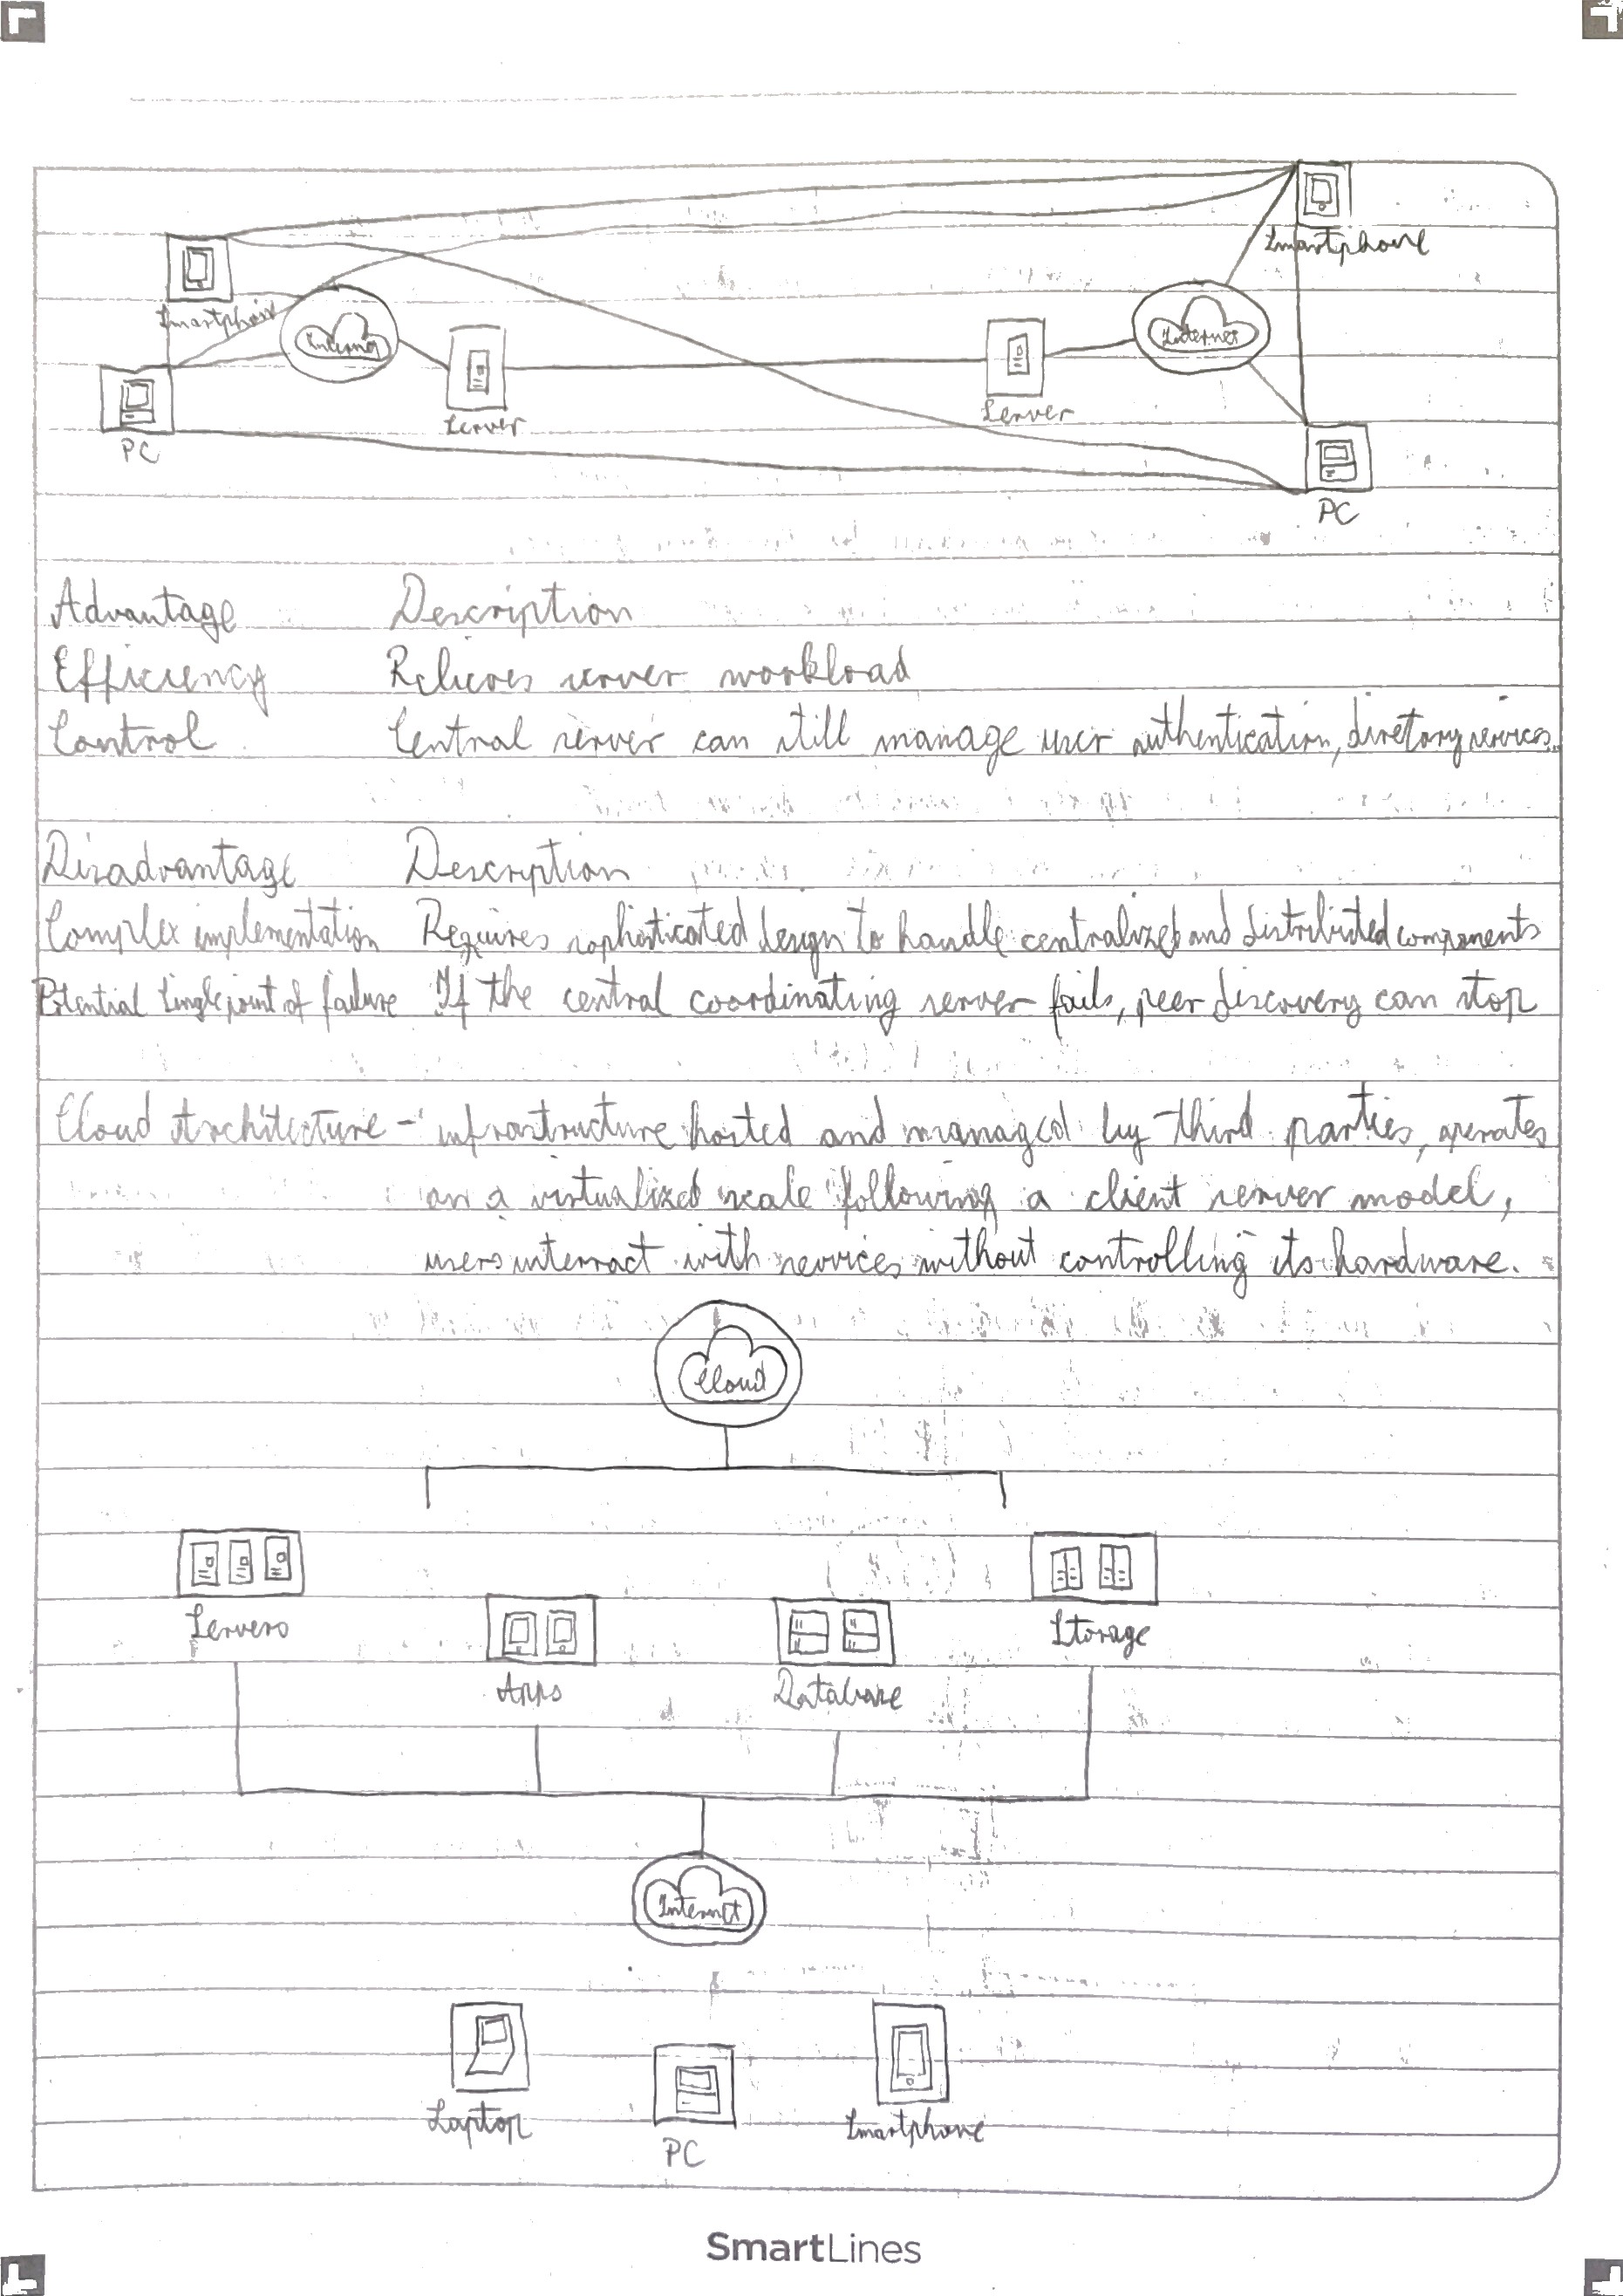 Smartphone
Smartphone
Internet
Internet
Server
Server
PC
PC
Advantage Description
Efficiency Relieves server workload
Control Central server can still manage user authentication, diretory services.
Disadvantage Description
Complex implementation Requires sophisticated design to handle centralized and distributed components
Potential Single point of failure If the central coordinating server fails, peer discovery can stop
Cloud Architecture - infrastructure hosted and managed by third parties, operates
on a virtualized scale following a client server model,
users interract with services without controlling its hardware.
Cloud
Servers
Storage
Apps
Database
Internet
Laptop
Smartphone
PC
SmartLines